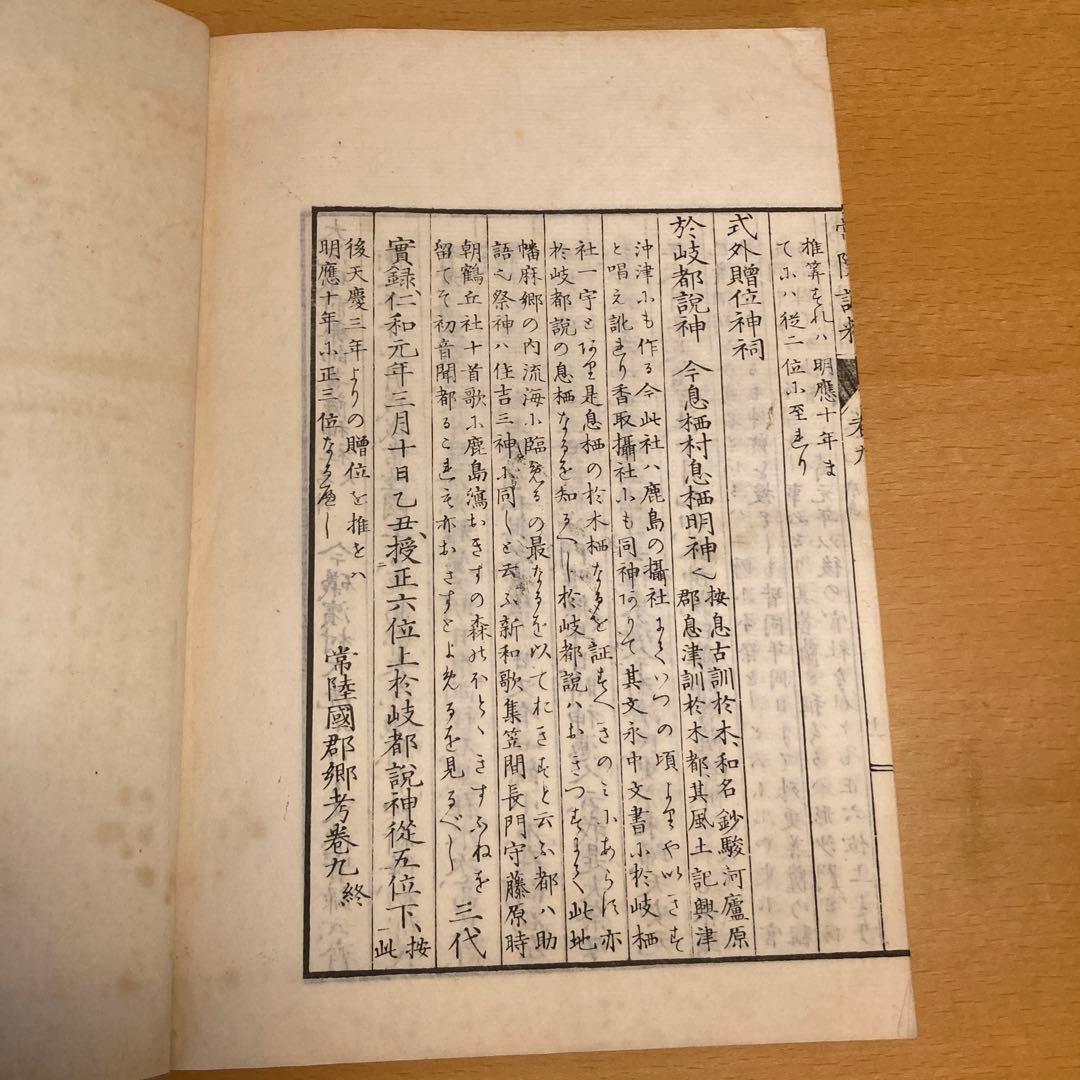 推算すれハ明應十年ま
てにハ從二位に至れり
式外贈位神祠
於岐都說神 今息栖村息栖明神也 按息古訓於木、和名鈔駿河廬原
郡息津、訓於木都、其風土記興津
沖津にも作る今此社ハ鹿島の攝社にていつの頃よりや以きす
と唱え訛れり香取攝社にも同神ありて其文永中文書に於岐栖
社一宇とあり是息栖の於木栖なるを証すへきのミにあらす亦
於岐都說の息栖なるを知るへし於岐都說ハおきつすにて此地
幡麻郷の内流海に臨
最なるを以ておきすと云ふ都ハ助
語也祭神ハ住吉三神に同しと云ふ新和歌集笠間長門守藤原時
朝鶴丘社十首歌に鹿島瀉おきすの森のほとゝきすふねを
留てそ初音聞都るこれも亦おきすとよめるを見るべし 三代
實録仁和元年三月十日乙丑、授正六位上於岐都說神從五位下、按此
後天慶三年よりの贈位を推をハ
明應十年に正三位なるへし
常陸國郡郷考卷九 終
卷九